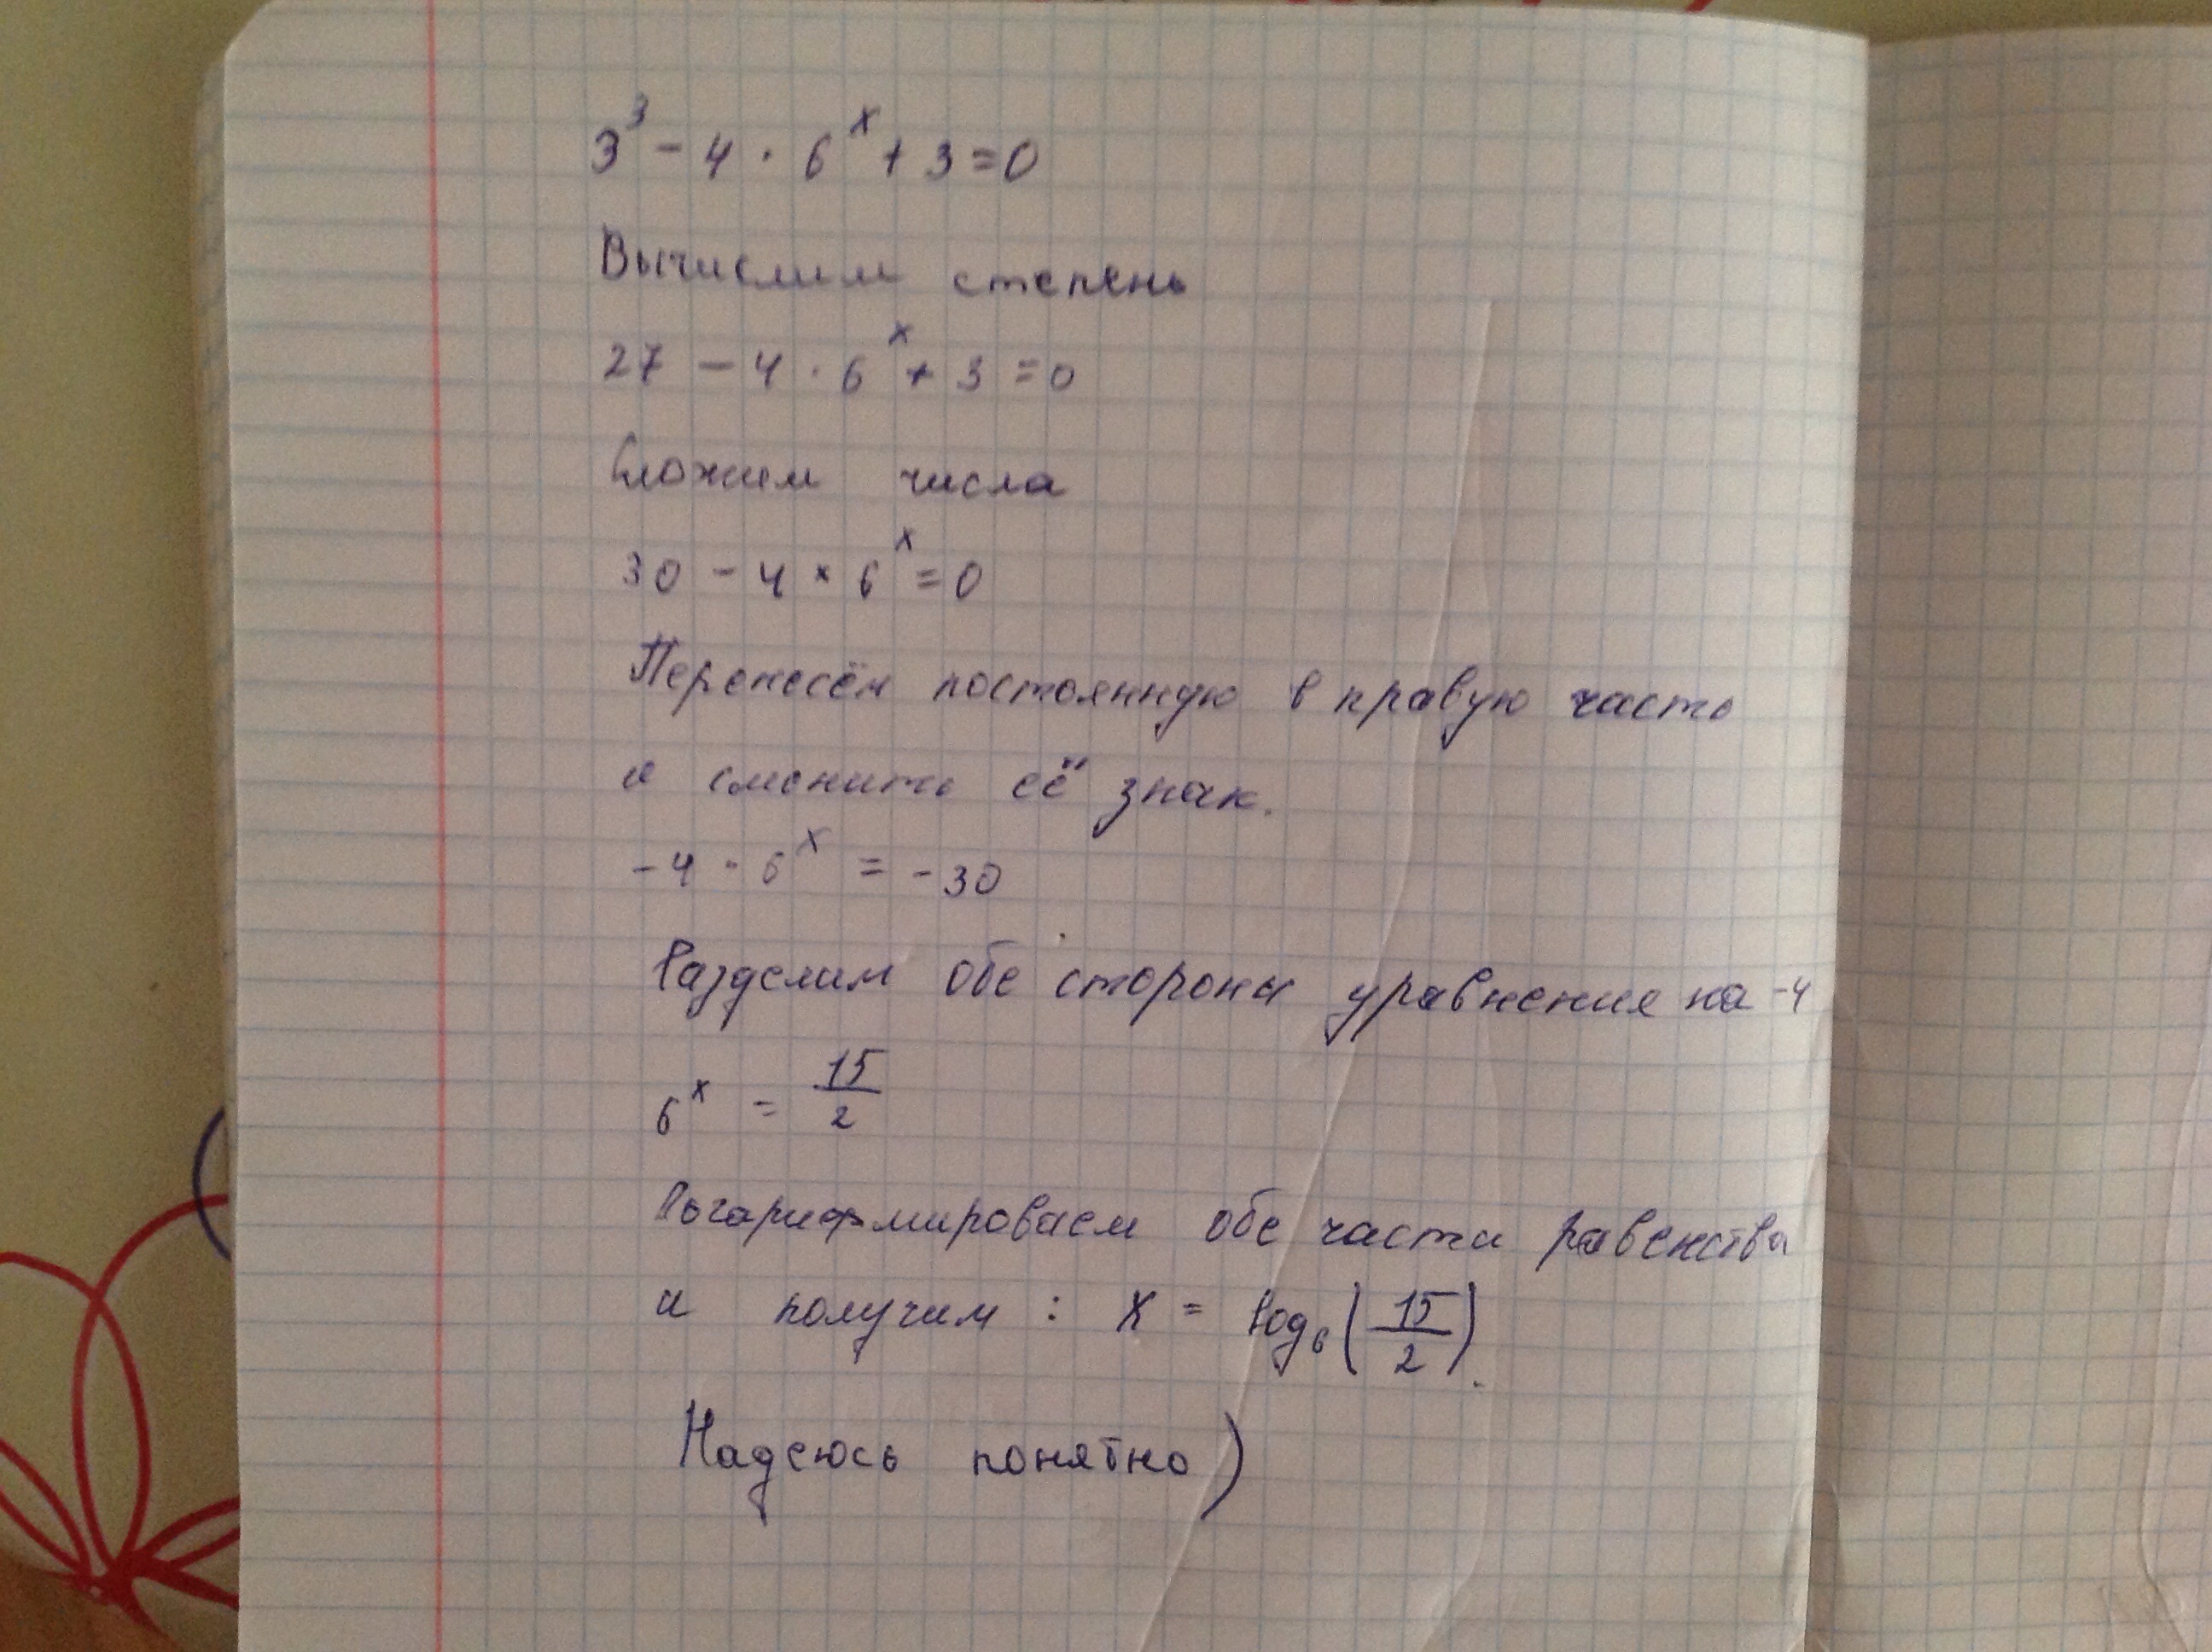 3³ - 4 · 6ˣ + 3 = 0
Вычислим степень
27 - 4 · 6ˣ + 3 = 0
Сложим числа
30 - 4 × 6ˣ = 0
Перенесём постоянную в правую часть
и сменить её знак.
-4 · 6ˣ = -30
Разделим обе стороны уравнения на -4
6ˣ = 15/2
Логарифмироваем обе части равенства
и получим : X = log₆(15/2).
Надеюсь понятно)